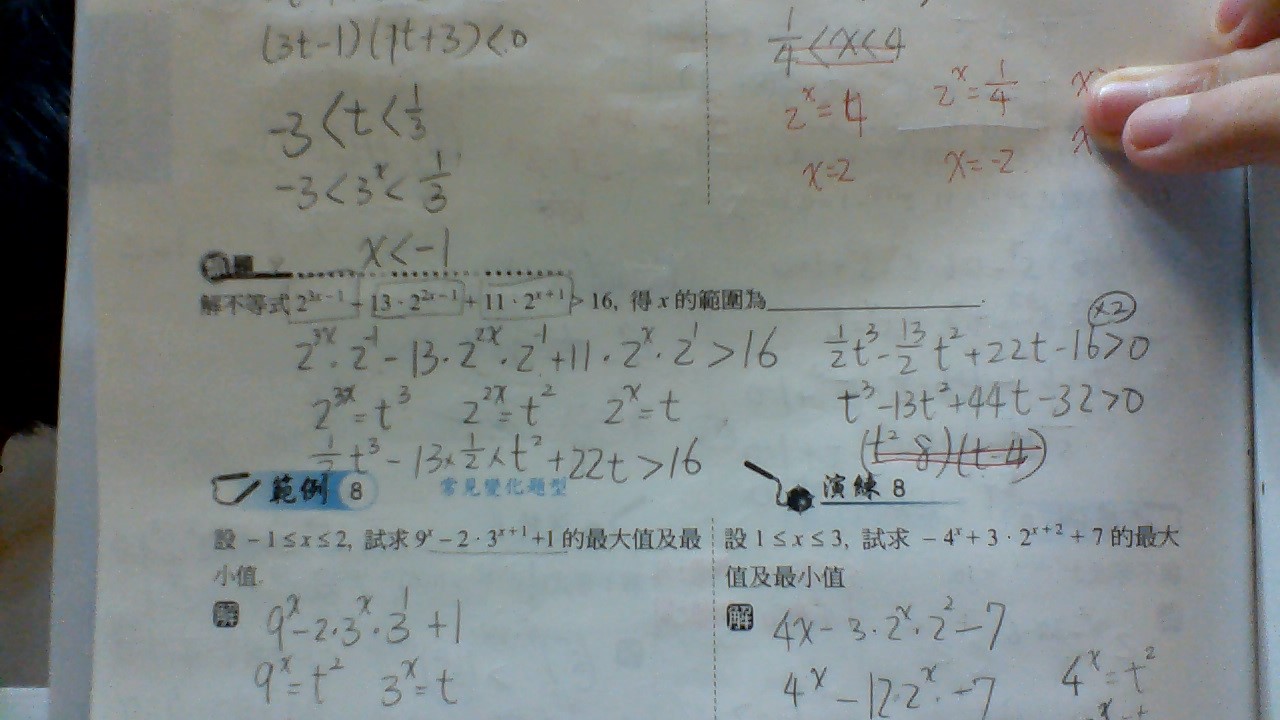 (3t-1)(9t+3)<0
-3<t<1/3
-3<3^x<1/3
x<-1
1/4<x<4
2^x=4 2^x=1/4
x=2 x=-2
題
解不等式 2^{3x-1} - 13·2^{2x-1} + 11·2^{x+1} > 16, 得 x 的範圍為
2^{3x}·2^{-1}-13·2^{2x}·2^{-1}+11·2^x·2^1>16
2^{3x}=t^3 2^{2x}=t^2 2^x=t
1/2 t^3-13×1/2×t^2+22t>16
(×2)
1/2 t^3-13/2 t^2+22t-16>0
t^3-13t^2+44t-32>0
(t^2 8)(t-4)
範例 8 常見變化題型
設 -1≤x≤2, 試求 9^x-2·3^{x+1}+1 的最大值及最
小值
解 9^x-2·3^x·3^1+1
9^x=t^2 3^x=t
演練 8
設 1≤x≤3, 試求 -4^x+3·2^{x+2}+7 的最大
值及最小值
解 4x-3·2^x·2^2-7
4^x-12·2^x-7 4^x=t^2